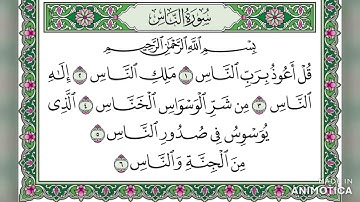 سُورَةُ النَّاسِ
بِسْمِ اللَّهِ الرَّحْمَٰنِ الرَّحِيمِ
قُلْ أَعُوذُ بِرَبِّ النَّاسِ ١ مَلِكِ النَّاسِ ٢ إِلَٰهِ
النَّاسِ ٣ مِن شَرِّ الْوَسْوَاسِ الْخَنَّاسِ ٤ الَّذِى
يُوَسْوِسُ فِى صُدُورِ النَّاسِ ٥
مِنَ الْجِنَّةِ وَالنَّاسِ ٦
MADE IN
ANIMOTICA